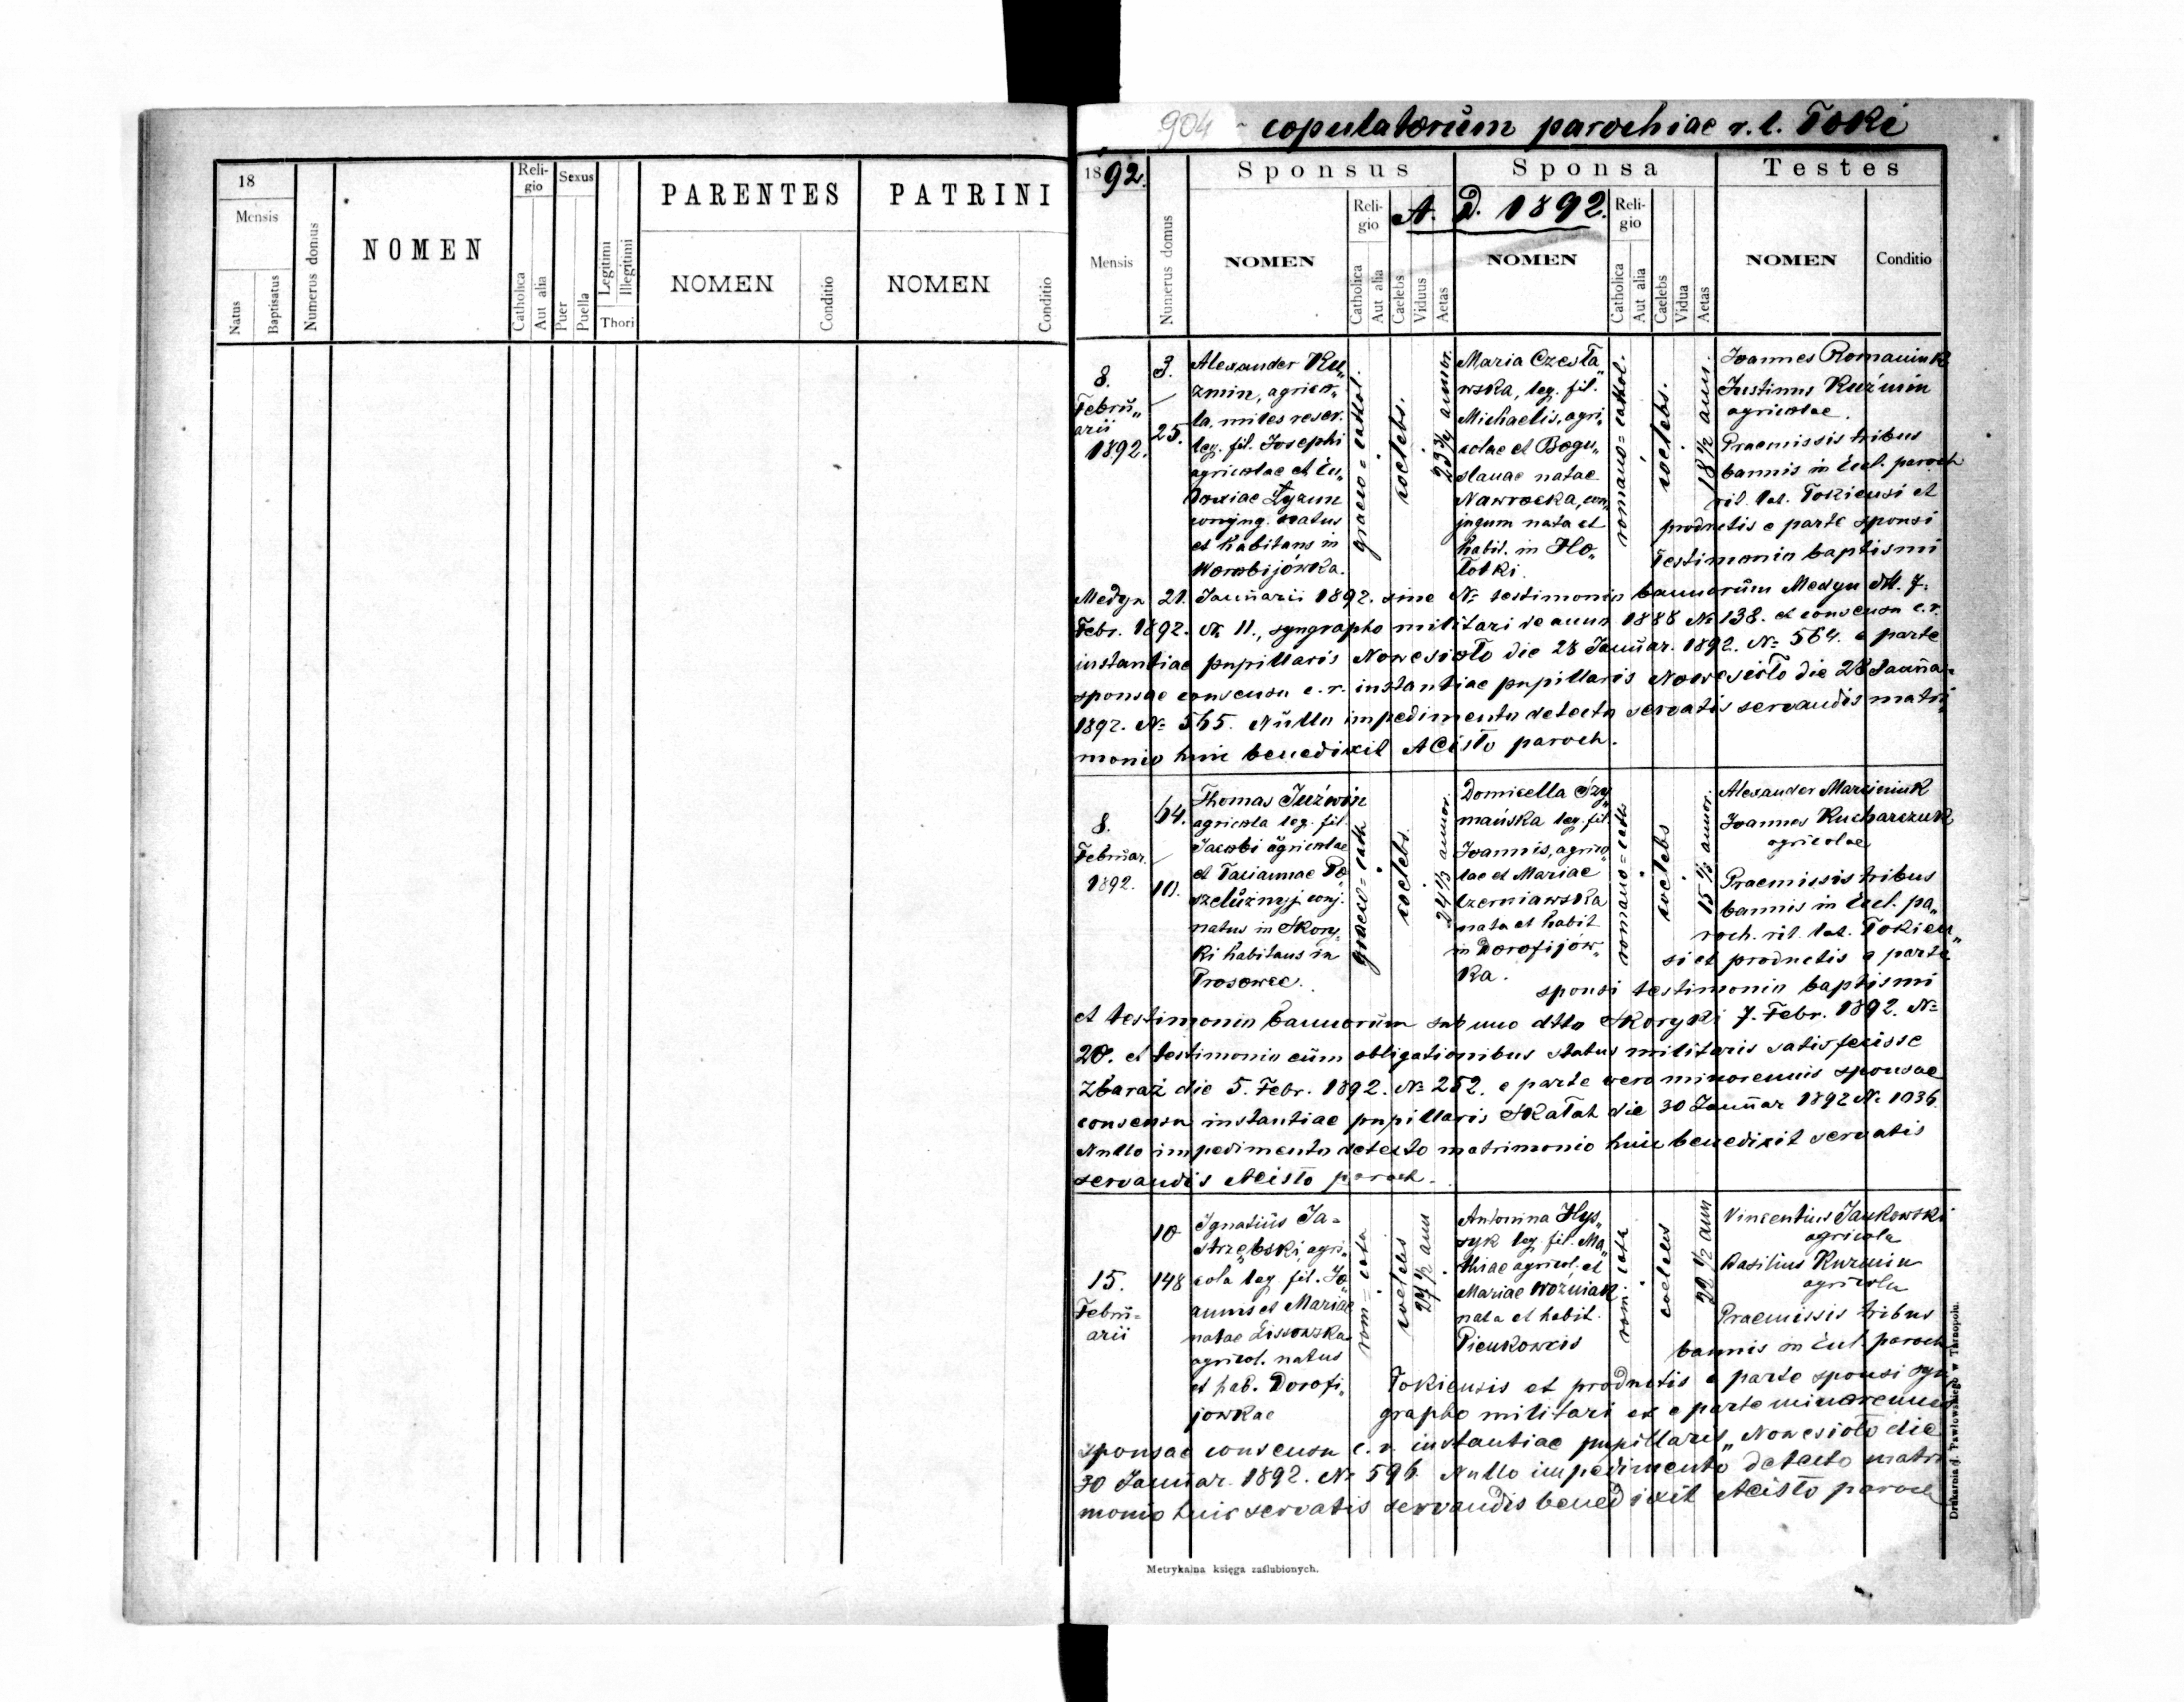 904 copulatorum parochiae r. l. Toki
18
Mensis
Natus
Baptisatus
Numerus domus
NOMEN
Reli-
gio
Catholica
Aut alia
Sexus
Puer
Puella
Legitimi
Illegitimi
Thori
PARENTES
NOMEN
Conditio
PATRINI
NOMEN
Conditio
1892.
Mensis
Numerus domus
Sponsus
NOMEN
Reli-
gio
Catholica
Aut alia
Caelebs
Viduus
Aetas
A. D. 1892.
Sponsa
NOMEN
Reli-
gio
Catholica
Aut alia
Caelebs
Vidua
Aetas
Testes
NOMEN
Conditio
8.
Febru„
arii
1892.
3.
25.
Alexander Ku„
zmin, agrico„
la, miles reser.
leg. fil. Josephi
agricolae et Eu„
doxiae Łyzun
conjug. natus
et habitans in
Worobijówka.
graeco = cathol.
coelebs.
23 3/4 annor.
Maria Czesła„
wska, leg. fil.
Michaelis, agri„
colae et Bogu„
slauae natae
Nawrocka, con„
jugum nata et
habit. in Ho„
łotki.
romano = cathol.
coelebs.
18 1/2 ann.
Joannes Romaniuk
Justinus Kuźmin
agricolae.
Praemissis tribus
bannis in Eccl. paroch
rit. lat. Tokiensi et
productis e parte sponsi
Testimonio baptismi
Medyn 21. Januarii 1892. sine № testimonio bannorum Medyn dtt. 7.
Febr. 1892. № 11., syngrapho militari de anno 1888 № 138. et consensu c. r.
instantiae pupillaris Nowesioło die 28 Januar. 1892. № 564. e parte
sponsae consensu c. r. instantiae pupillaris Nowesioło die 28 Janua=
1892. № 565. Nullo impedimento detecto servatis servandis matri„
monio huic benedixit ACisło paroch.
8.
Februar.
1892.
64.
10.
Thomas Juźwin
agricola leg. fil.
Jacobi agricolae
et Taciannae Po„
szelużnyj conj.
natus in Skory„
ki habitans in
Prosowce.
graeco = cath
coelebs.
24 1/3 annor.
Domicella Szy„
mańska leg. fil.
Joannis, agrico„
lae et Mariae
Czerniawska
nata et habit
in Dorofijów„
ka.
romano = cath.
coelebs
15 1/3 annor.
Alexander Marciniuk
Joannes Kucharczuk
agricolae
Praemissis tribus
bannis in Eccl. pa„
roch. rit. lat. Tokien„
si et productis e parte
sponsi testimonio baptismi
et testimonio bannorum sub uno dtto Skoryki 7. Febr. 1892. №
20. et testimonio eum obligationibus status militaris satisfecisse
Zbaraż die 5. Febr. 1892. № 252. e parte vero minorennis sponsae
consensu instantiae pupillaris Skałat die 30 Januar 1892 № 1036.
Nullo impedimento detecto matrimonio huic benedixit servatis
servandis ACisło paroch.
15.
Febru=
arii
10
148
Ignatius Ja=
strzębski agri„
cola leg. fil. Jo„
annis et Mariae
natae Lissowska
agricol. natus
et hab. Dorofi„
jowkae
rom = cath
coelebs
27 1/2 ann
Antonina Hys„
syk leg. fil. Ma„
thiae agricol. et
Mariae Woźniak
nata et habit.
Pieńkowcis
rom. cath
coelebs
22 1/2 ann
Vincentius Jankowski
agricola
Basilius Kuzmin
agricola
Praemissis tribus
bannis in Eccl. paroch
Tokiensis et productis e parte sponsi syn„
grapho militari et e parte minorennis
sponsae consensu c. r. instantiae pupillaris„ Nowesioło die
30 Januar. 1892. № 596. Nullo impedimento detecto matri
monio huic servatis servandis benedixit ACisło paroch
Metrykalna księga zaślubionych.
Drukarnia J. Pawłowskiego w Tarnopolu.